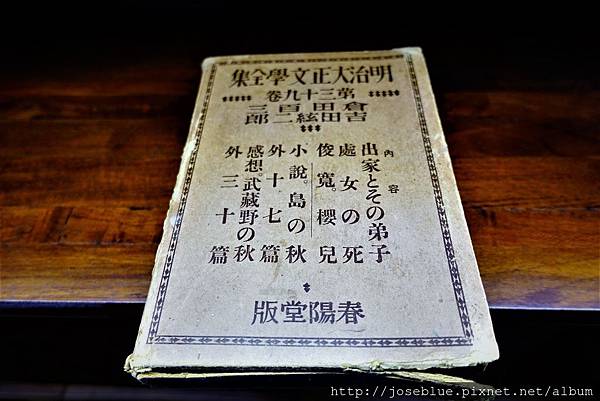 集全學文正大治明
卷九十三第
三百田倉
郎二絃田吉
內容
出家とその弟子
處女の死
俊寬。櫻兒
小說。島の秋
外十七篇
感想。武藏野の秋
外三十篇
版堂陽春
http://joseblue.pixnet.net/album